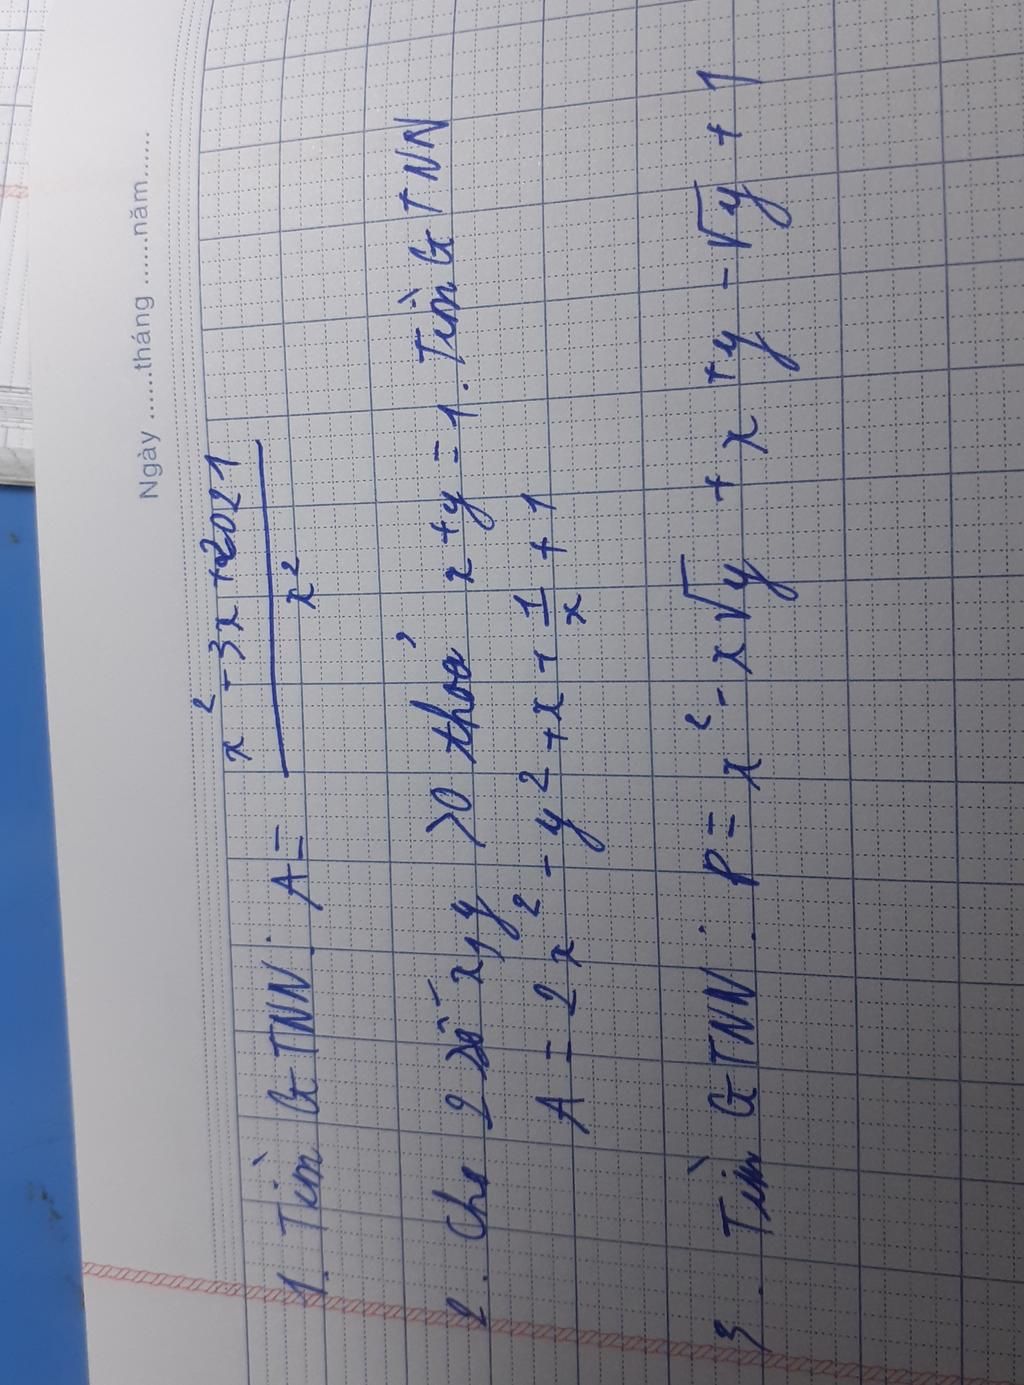 Ngày ......tháng ......năm......
1. Tìm GTNN : A = \frac{x² - 3x + 2021}{x²}
2. Cho 2 số x, y >0 thoả x + y = 1. Tìm GTNN
A = 2x² - y² + x + \frac{1}{x} + 1
3. Tìm GTNN : P = x² - x√y + x + y - √y + 1